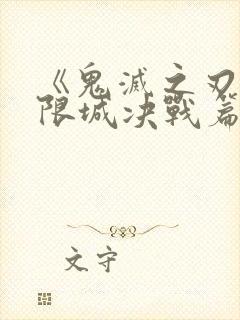 《鬼滅之刃
限城决戰篇
文守